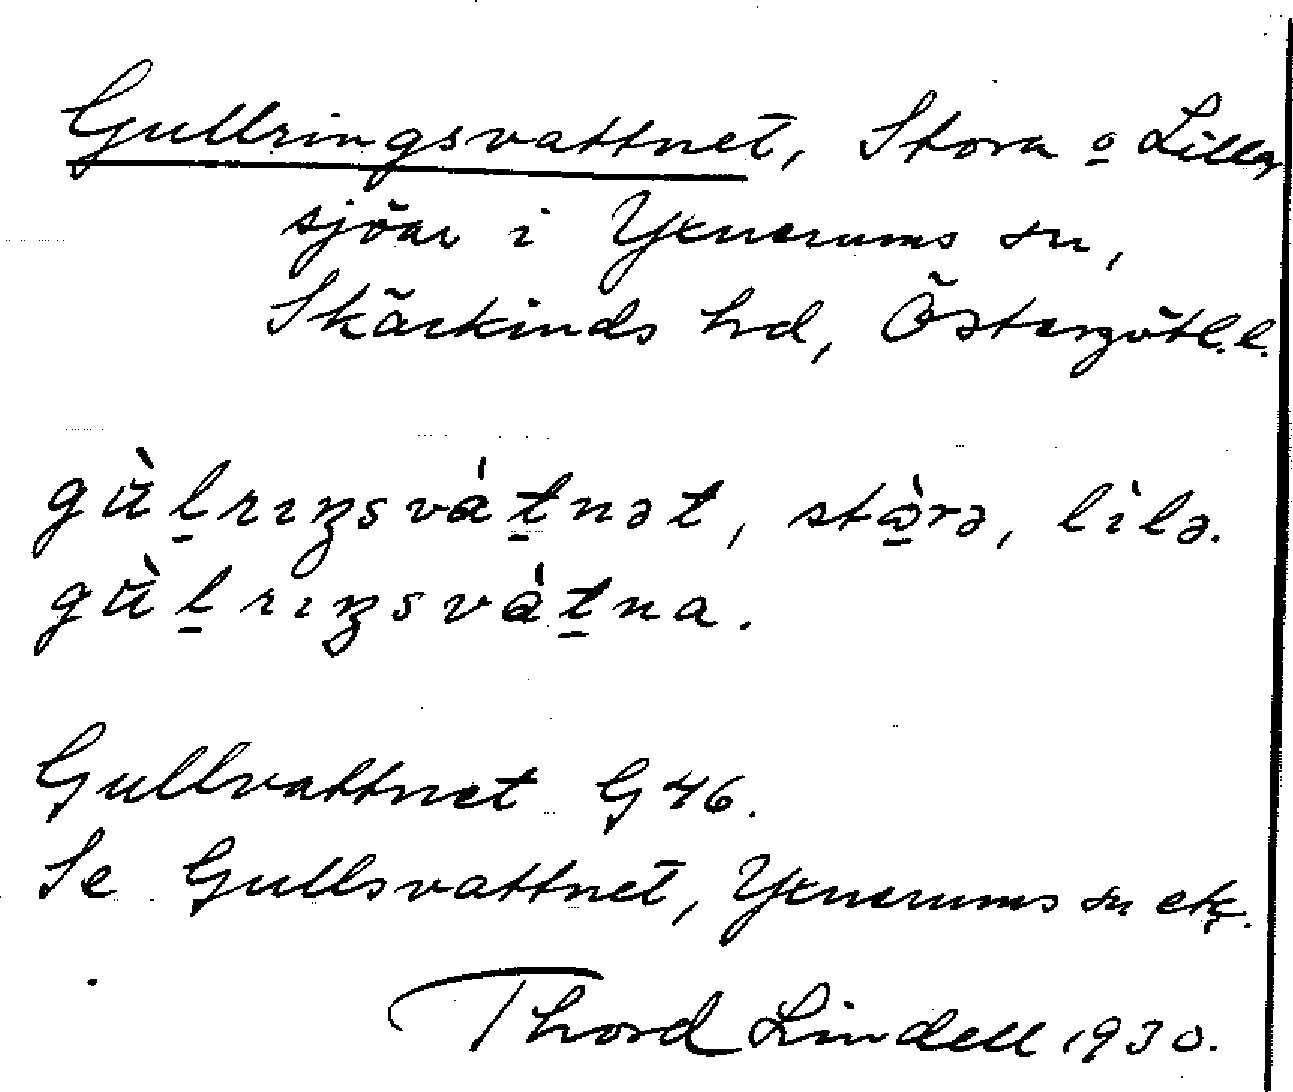 Gullringsvattnet, Stora o Lilla
sjöar i Yxnerums sn,
Skärkinds hd, Östergötl. l.
gùl̠rıŋsvàt̠nət, stɔ̠̀rə, lìlə.
gùl̠rıŋsvàt̠na.
Gullvattnet G 46.
Se Gullsvattnet, Yxnerums sn etc.
Thord Lindell 1930.